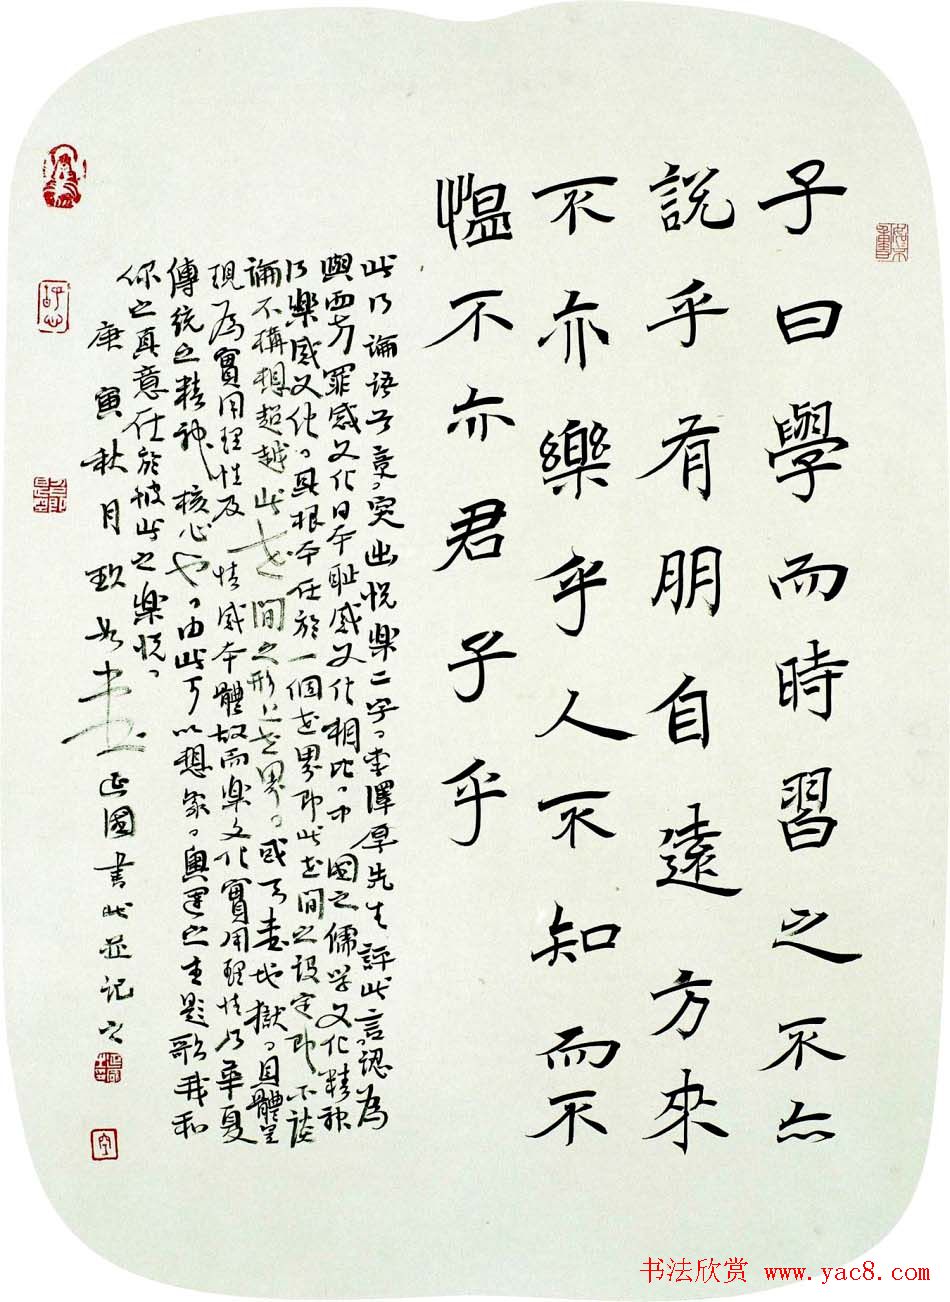 子曰學而時習之不亦
說乎有朋自遠方來
不亦樂乎人不知而不
愠不亦君子乎
此乃論語首章突出悅樂二字李澤厚先生評此言認為
與西方罪感文化日本耻感文化相比中國之儒学文化精神
乃樂感文化其根本在於一個世界即此世間之設定即不談
論不構想超越此世間之形上世界或天堂地獄具體呈
現為實用理性及情感本體故而樂文化實用理性乃華夏
傳統之精神核心也由此可以想象奧運之主題歌我和
你之真意在於彼此之樂悅
庚寅秋月 書 國書此並記之
书法欣赏 www.yac8.com